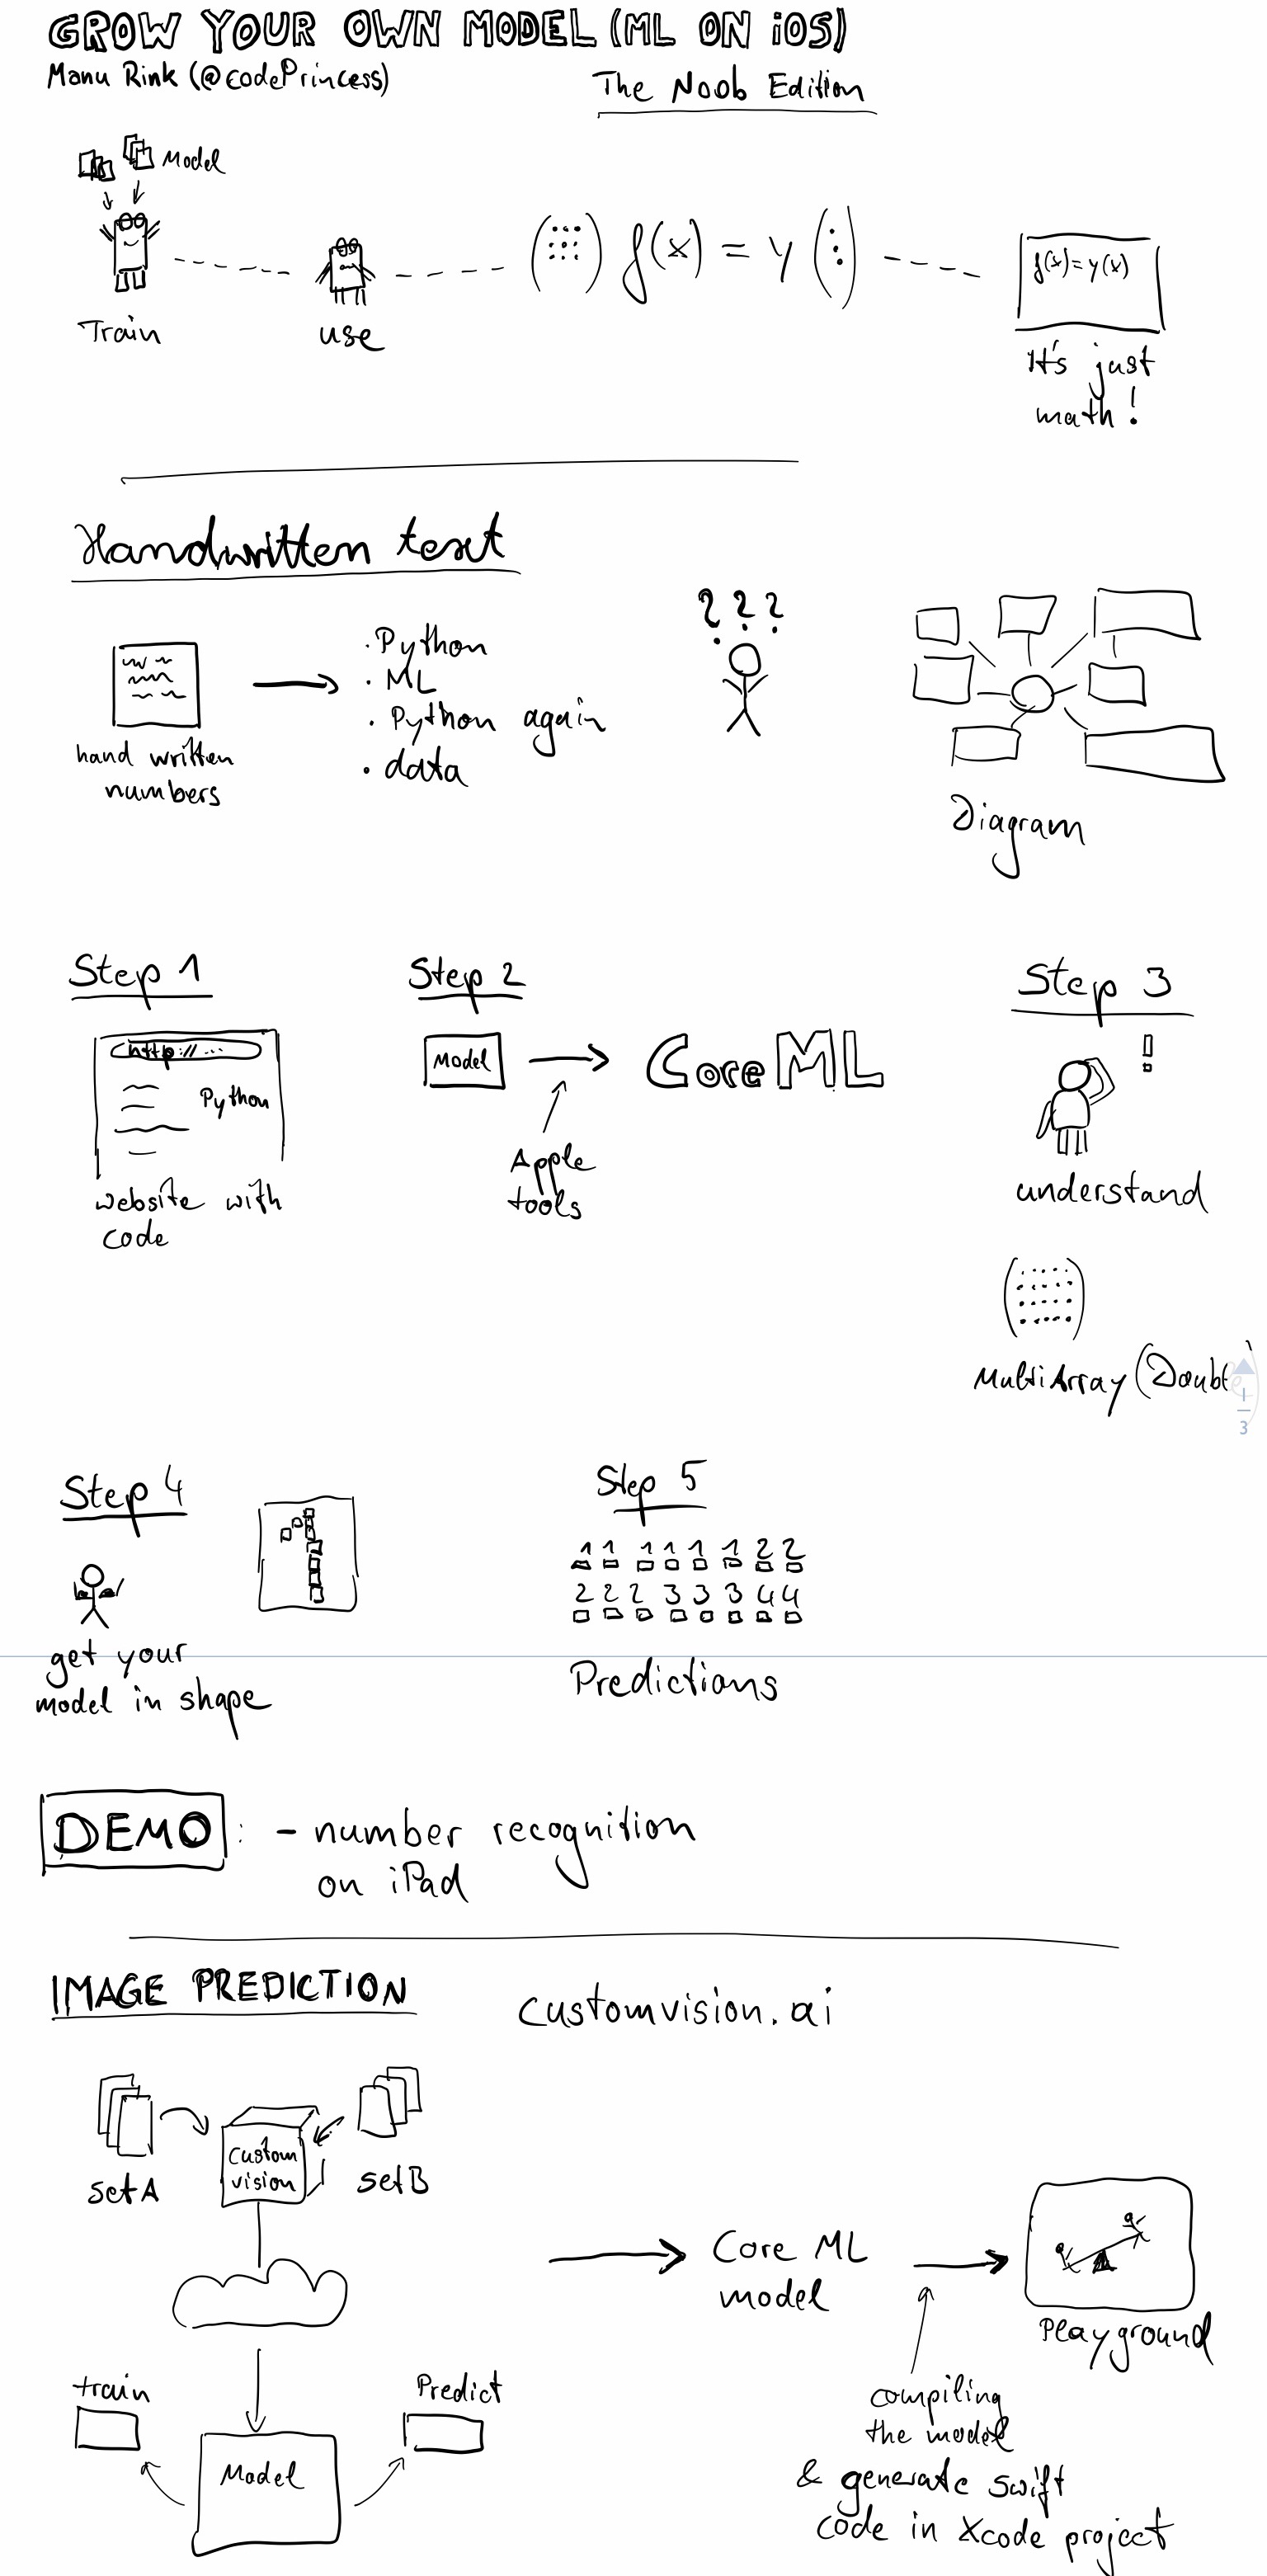 GROW YOUR OWN MODEL (ML ON iOS)
Manu Rink (@codePrincess)
The Noob Edition
Model
Train
use
f(x) = y
f(x)=y(x)
It's just
math!
Handwritten text
hand written
numbers
· Python
· ML
· Python again
· data
? ? ?
Diagram
Step 1
http://...
Python
website with
code
Step 2
Model
CoreML
Apple
tools
Step 3
!
understand
MultiArray (Double)
1
3
Step 4
get your
model in shape
Step 5
1 1 1 1 1 1 2 2
2 2 2 3 3 3 4 4
Predictions
DEMO: - number recognition
on iPad
IMAGE PREDICTION
customvision.ai
setA
Custom
vision
setB
train
Predict
Model
Core ML
model
Playground
compiling
the model
& generate swift
code in Xcode project